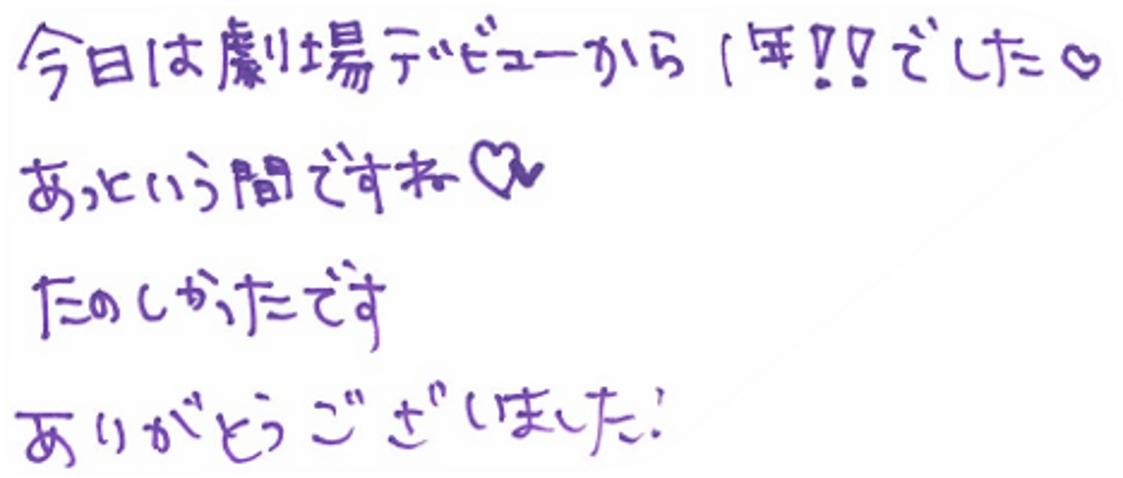 今日は劇場デビューから1年!!でした♡
あっという間ですね♡
たのしかったです
ありがとうございました!